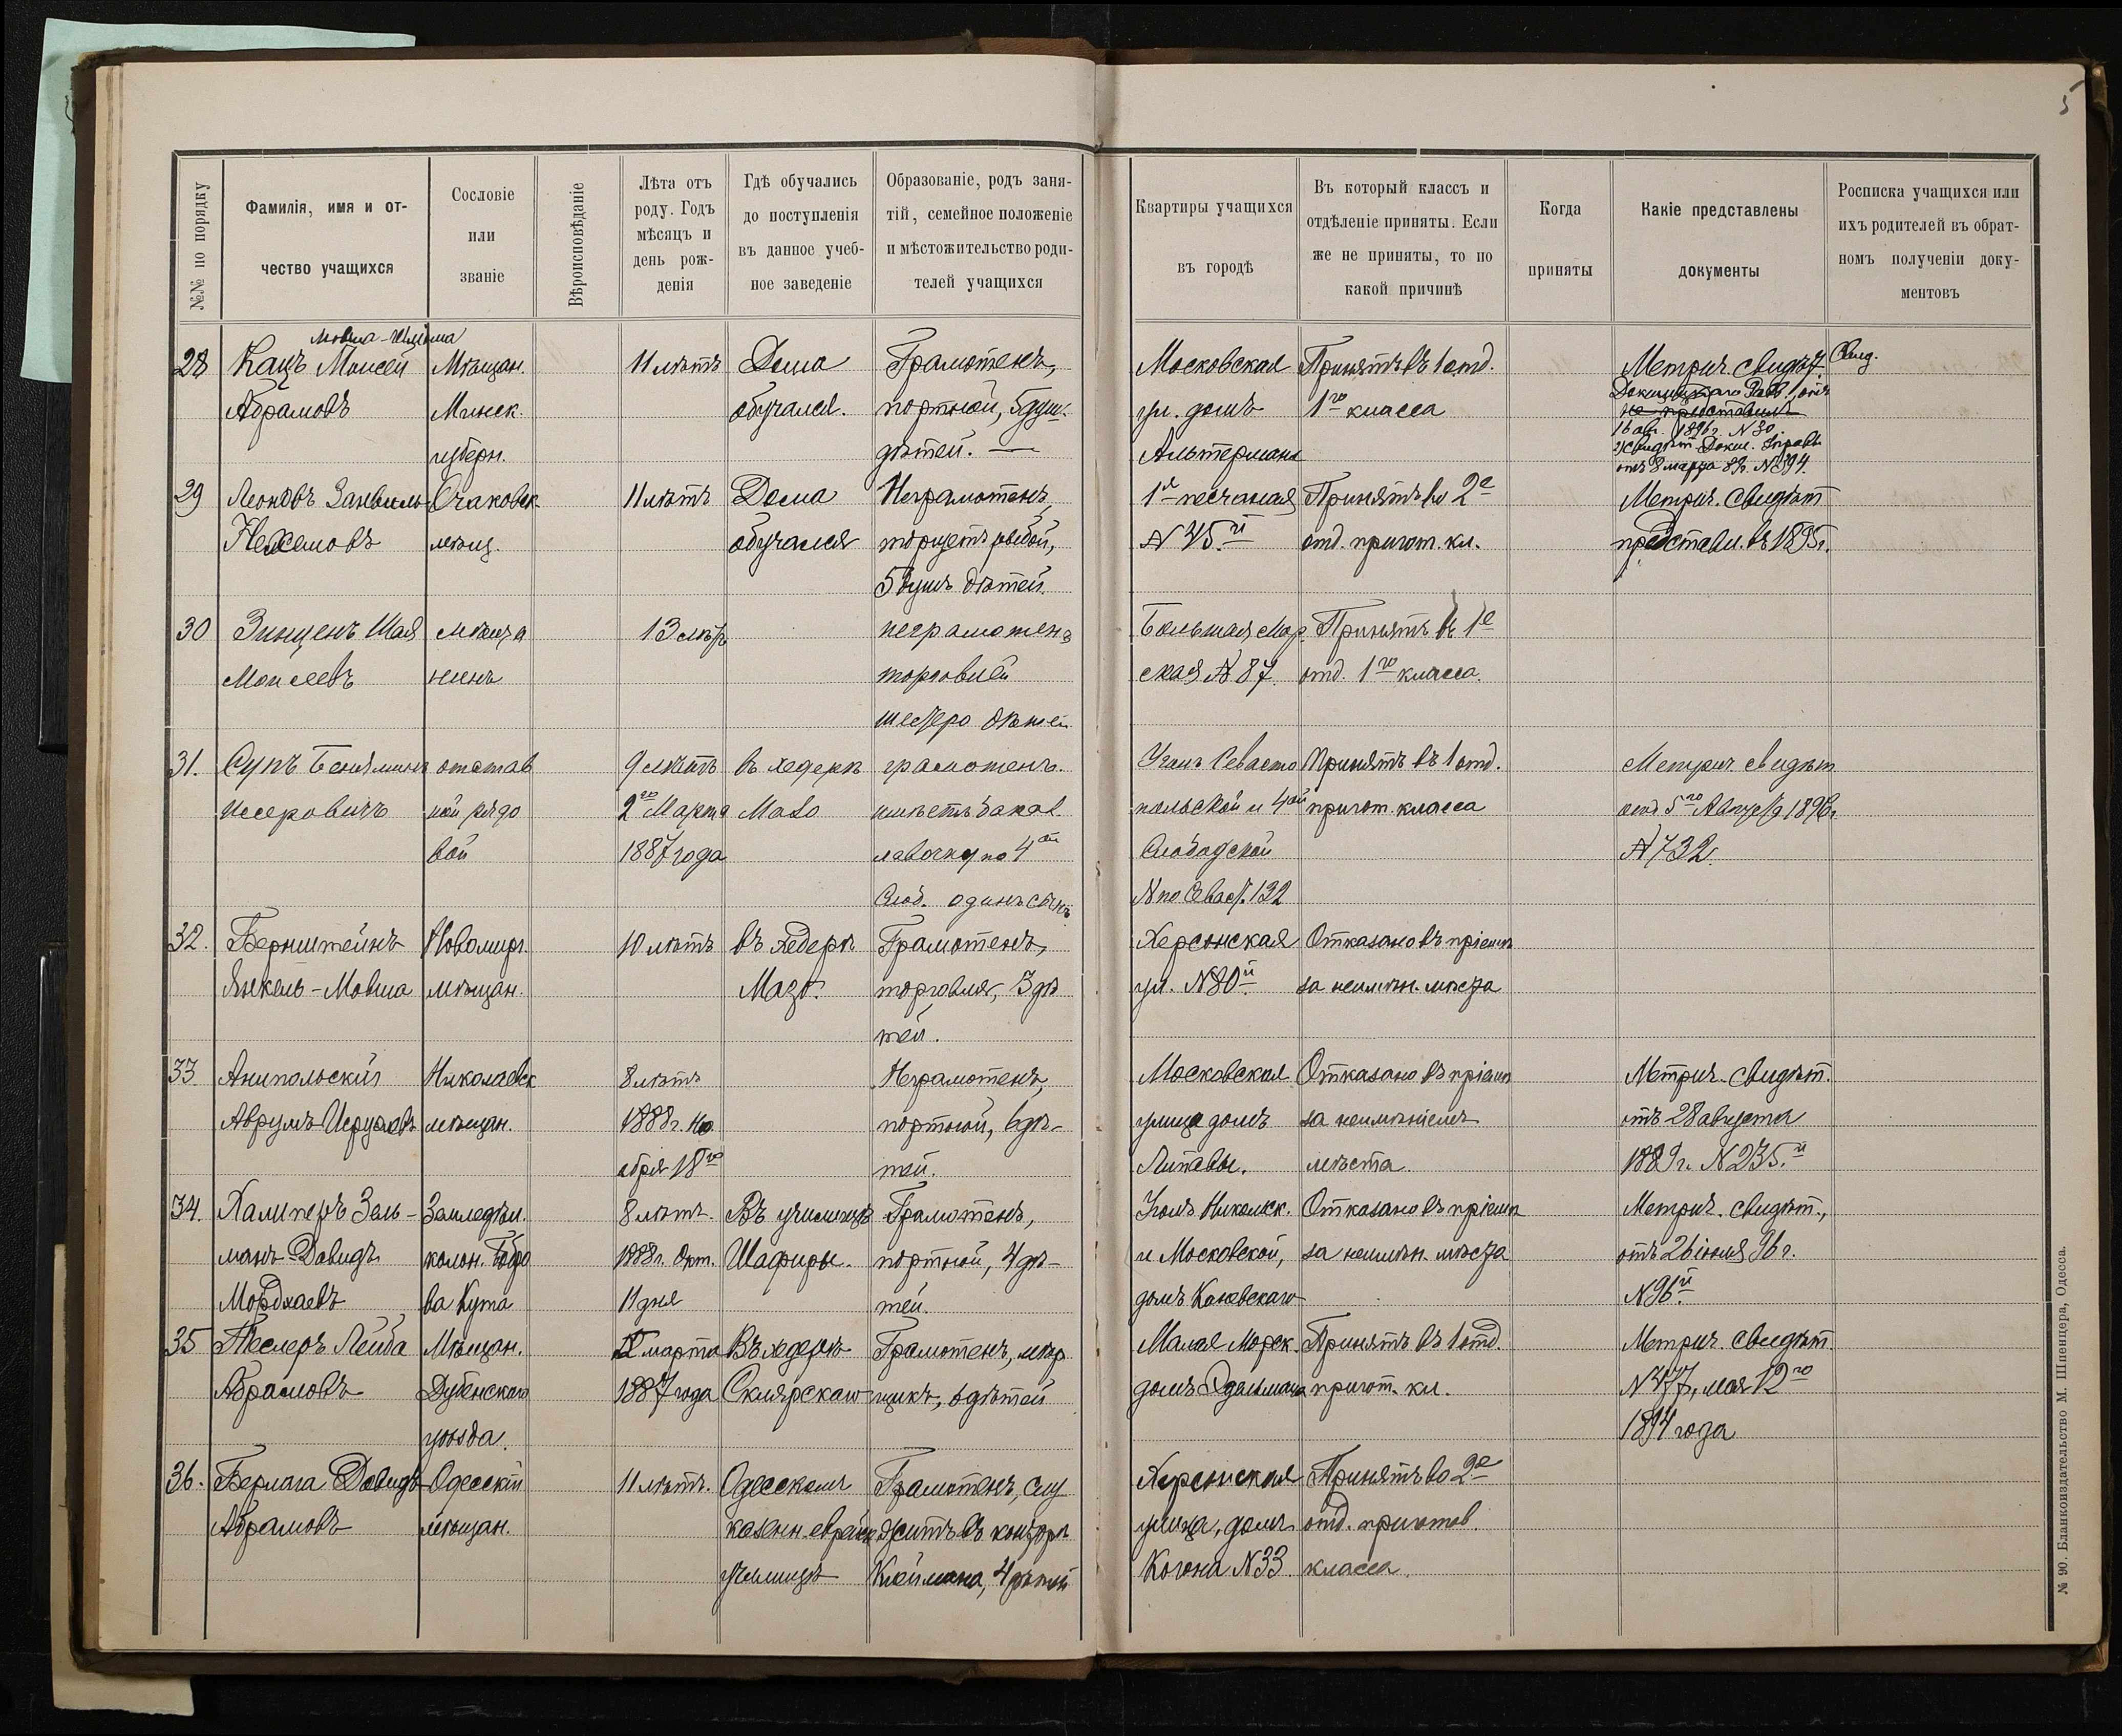 5
№№ по порядку
Фамилія, имя и от-
чество учащихся
Сословіе
или
званіе
Вѣроисповѣданіе
Лѣта отъ
роду. Годъ
мѣсяцъ и
день рож-
денія
Гдѣ обучались
до поступленія
въ данное учеб-
ное заведеніе
Образованіе, родъ заня-
тій, семейное положеніе
и мѣстожительство роди-
телей учащихся
Квартиры учащихся
въ городѣ
Въ который классъ и
отдѣленіе приняты. Если
же не приняты, то по
какой причинѣ
Когда
приняты
Какіе представлены
документы
Росписка учащихся или
ихъ родителей въ обрат-
номъ полученіи доку-
ментовъ
28
Мовша-Шлема
Кацъ Моисей
Абрамовъ
Мѣщан.
Минск.
губерн.
11 лѣтъ
Дома
обучался.
Грамотенъ,
портной, 5 душ.
дѣтей. —
Московская
ул. домъ
Альтермана
Принятъ въ 1 отд.
1го класса
Метрич. свидѣт.
не представилъ
16 авг. 1896 г. N 30
отъ 8 марта 89. N 394.
29
Леоновъ Занвиль
Нехемовъ
Очаковск.
мѣщ.
11 лѣтъ
Дома
обучался
Неграмотенъ,
торгуетъ рыбой,
5 душъ дѣтей.
1я песчаная
N 45.й
Принятъ во 2е
отд. пригот. кл.
Метрич. свидѣт.
представл. въ 1895 г.
30
Зинценъ Шая
Моисеевъ
мѣща
нинъ
13 лѣтъ
неграмотенъ
торговлей
шестеро дѣтей
Большая Мор.
ская N 87
Принятъ въ 1е
отд. 1го класса.
31.
Супъ Беняминъ
Исеровичъ
отстав
ной рядо
вой
9 лѣтъ
2го Марта
1887 года
въ хедерѣ
Мазо
грамотенъ.
имѣетъ бакал.
лавочку по 4ой
Слоб. одинъ сынъ
Уголъ Севасто
польской и 4ой
Слободской
N по Севаст. 132
Принятъ въ 1 отд.
пригот. класса
Метрич. свидѣт.
отъ 5го Августа 1896 г.
N 732.
32.
Бернштейнъ
Янкель-Мовша
Новомирг.
мѣщан.
10 лѣтъ
въ хедерѣ
Мазо.
Грамотенъ,
торговля, 3 дѣ
тей.
Херсонская
ул. N 80й
Отказано въ пріемѣ
за неимѣн. мѣста
33
Анипольскій
Аврумъ Исруловъ
Николаевск
мѣщан.
8 лѣтъ
1888 г. Но
ября 18го
Неграмотенъ,
портной, 6 дѣ-
тей.
Московская
улица домъ
Липавы.
Отказано въ пріемѣ
за неимѣніемъ
мѣста.
Метрич. свидѣт.
отъ 28 августа
1889 г. N 235.й
34.
Халиперъ Зель-
манъ-Давидъ
Мордхаевъ
Земледѣл.
колон. Бобро
ва Кута
8 лѣтъ.
1888 г. Окт.
11 дня
Въ училищѣ
Шафиры.
Грамотенъ,
портной, 4 дѣ-
тей.
Уголъ Никольск.
и Московской,
домъ Каневскаго
Отказано въ пріемѣ
за неимѣн. мѣста
Метрич. свидѣт.,
отъ 26 іюля 96 г.
N 96й
35
Теслеръ Лейба
Абрамовъ
Мѣщан.
Дубенскаго
уѣзда.
марта
1887 года
Въ хедерѣ
Склярскаго
Грамотенъ,
щикъ, 6 дѣтей
Малая Морск.
домъ Эдельмана
Принятъ въ 1 отд.
пригот. кл.
Метрич. свидѣт.
N 477, мая 12го
1894 года
36.
Берлага Давидъ
Абрамовъ
Одесскій
мѣщан.
11 лѣтъ.
Одесскомъ
казенн. еврейск.
училищѣ
Грамотенъ, слу
житъ въ конторѣ
Клеймана, 4 дѣтей
Херсонская
улица, домъ
Когона N 33
Принятъ во 2е
отд. приготов.
класса.
№ 90. Бланкоиздательство М. Шпенцера, Одесса.